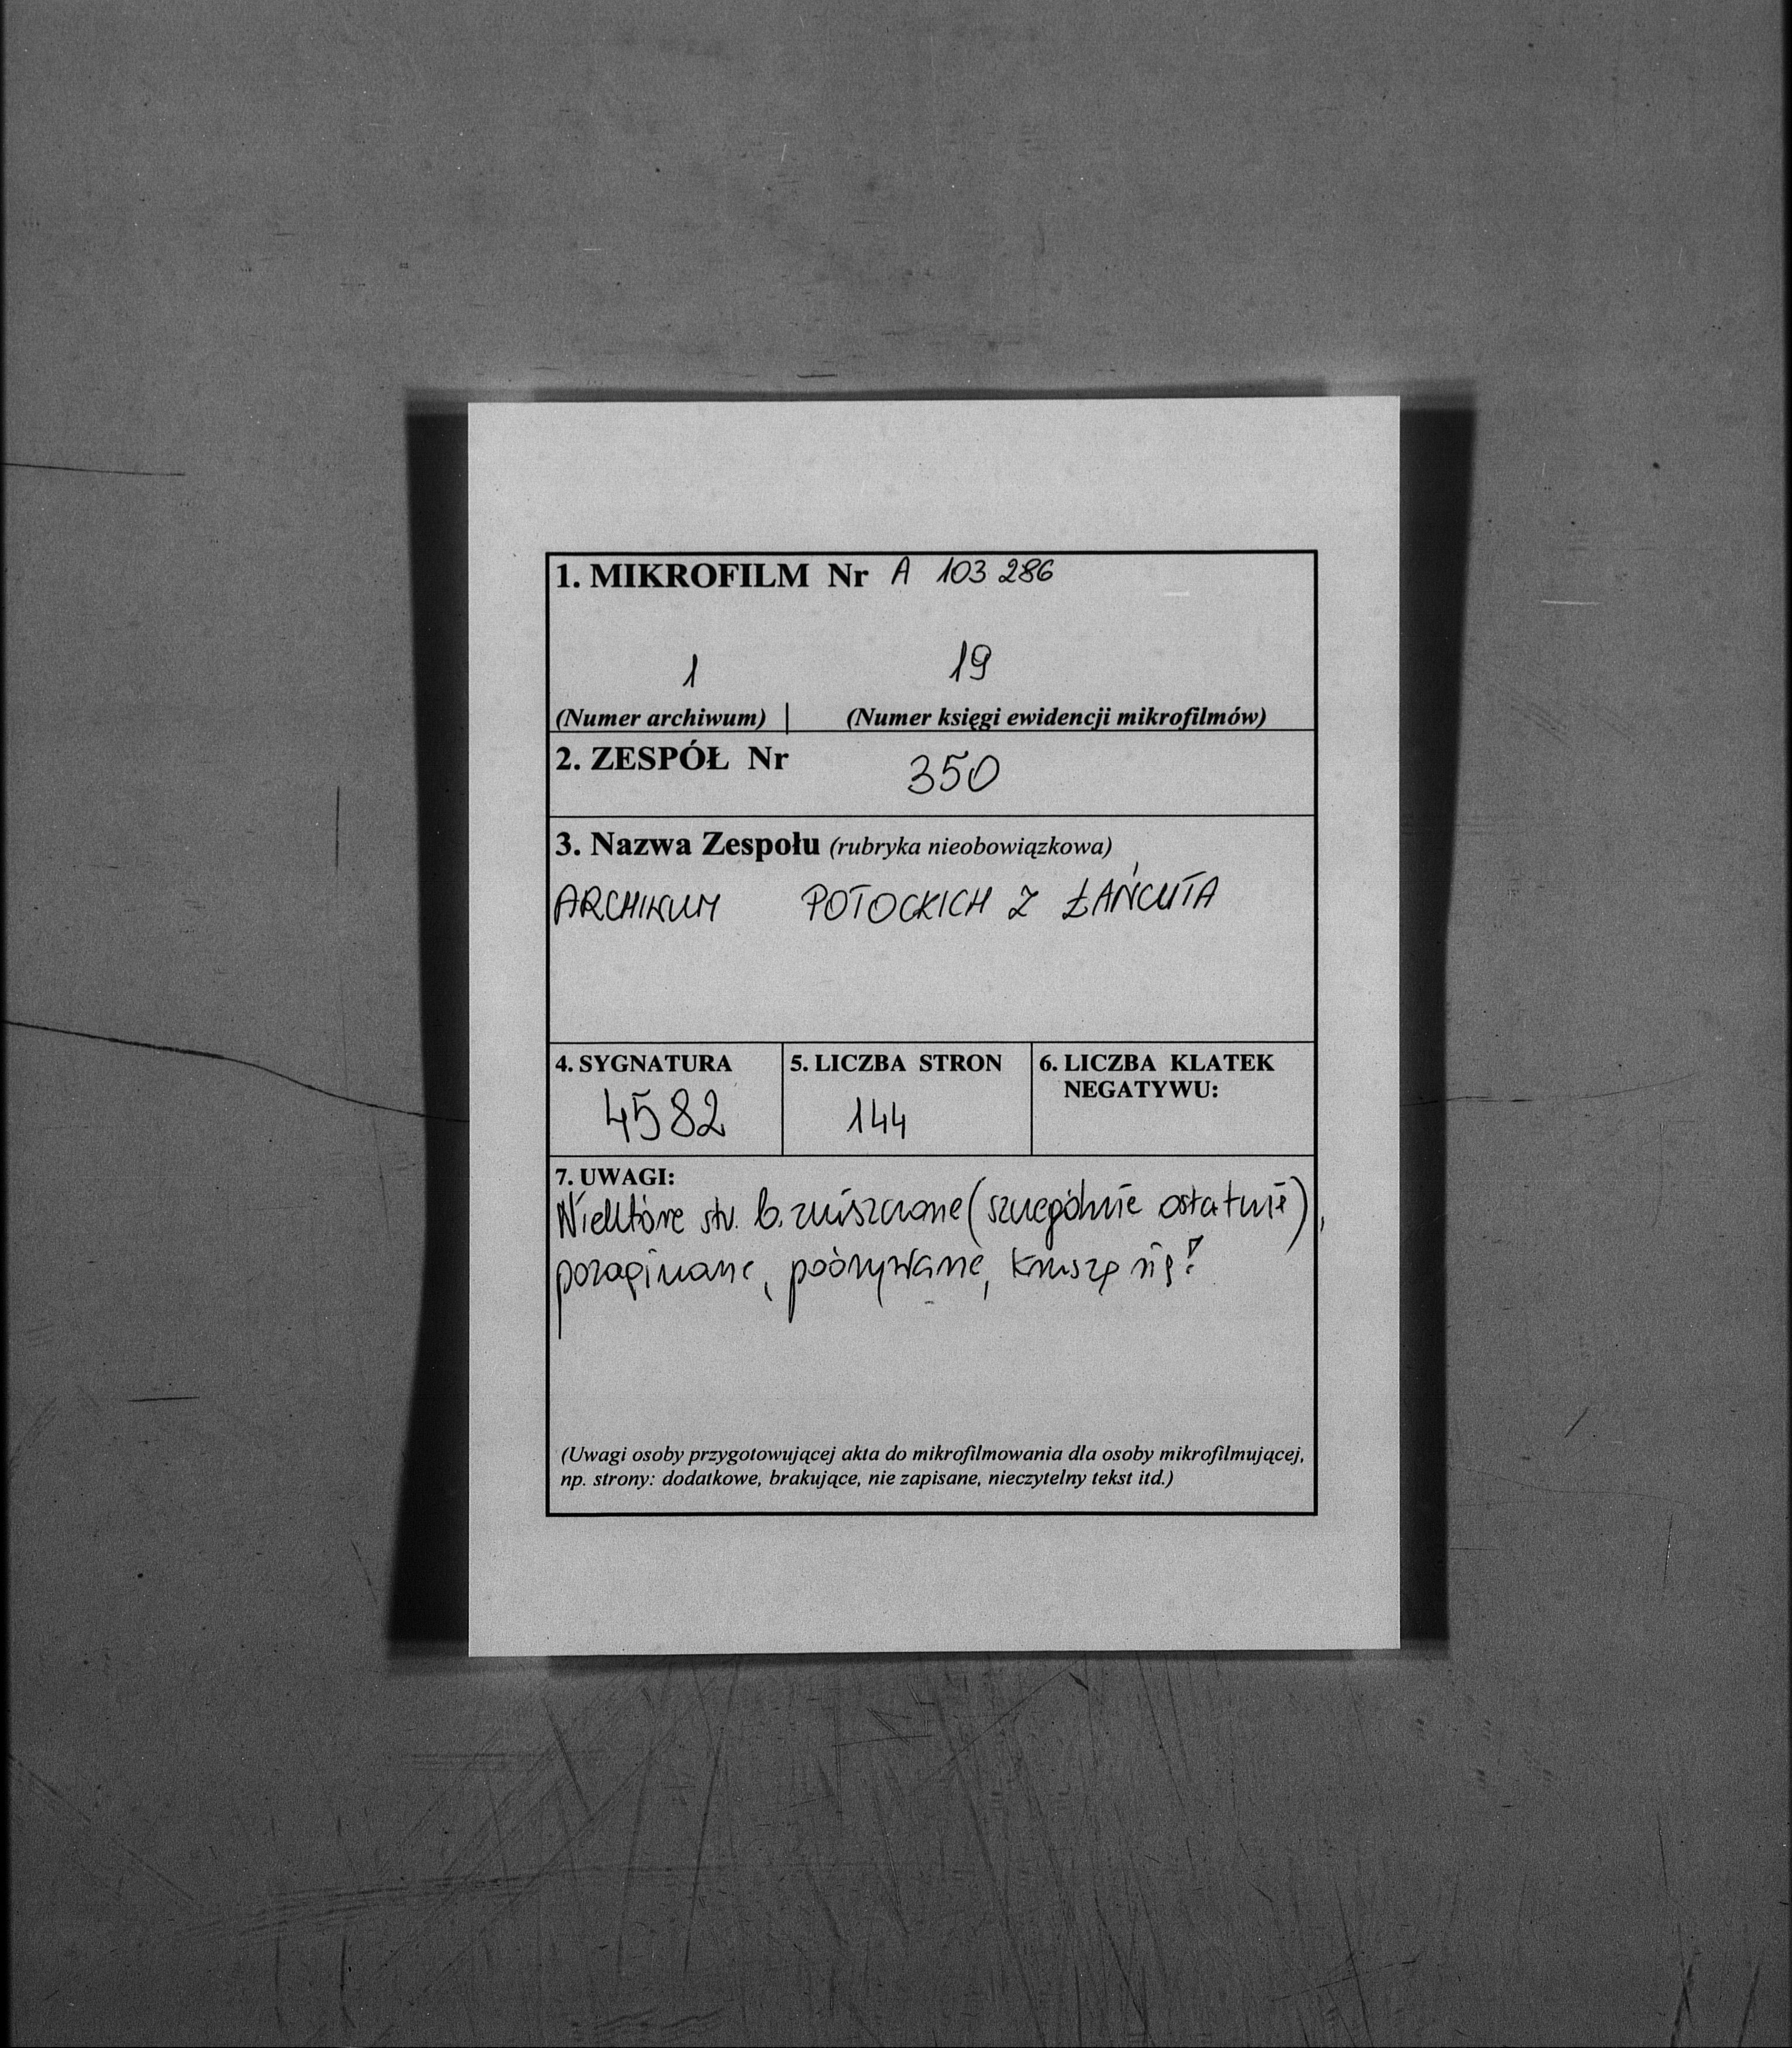 1. MIKROFILM Nr A 103 286
1 19
(Numer archiwum) | (Numer księgi ewidencji mikrofilmów)
2. ZESPÓŁ Nr 350
3. Nazwa Zespołu (rubryka nieobowiązkowa)
ARCHIWUM POTOCKICH Z ŁAŃCUTA
4. SYGNATURA 5. LICZBA STRON 6. LICZBA KLATEK
NEGATYWU:
4582 144
7. UWAGI:
Niektóre str. b. zniszczone (szczególnie ostatnie),
pozaginane, poobrywane, kruszą się!
(Uwagi osoby przygotowującej akta do mikrofilmowania dla osoby mikrofilmującej,
np. strony: dodatkowe, brakujące, nie zapisane, nieczytelny tekst itd.)